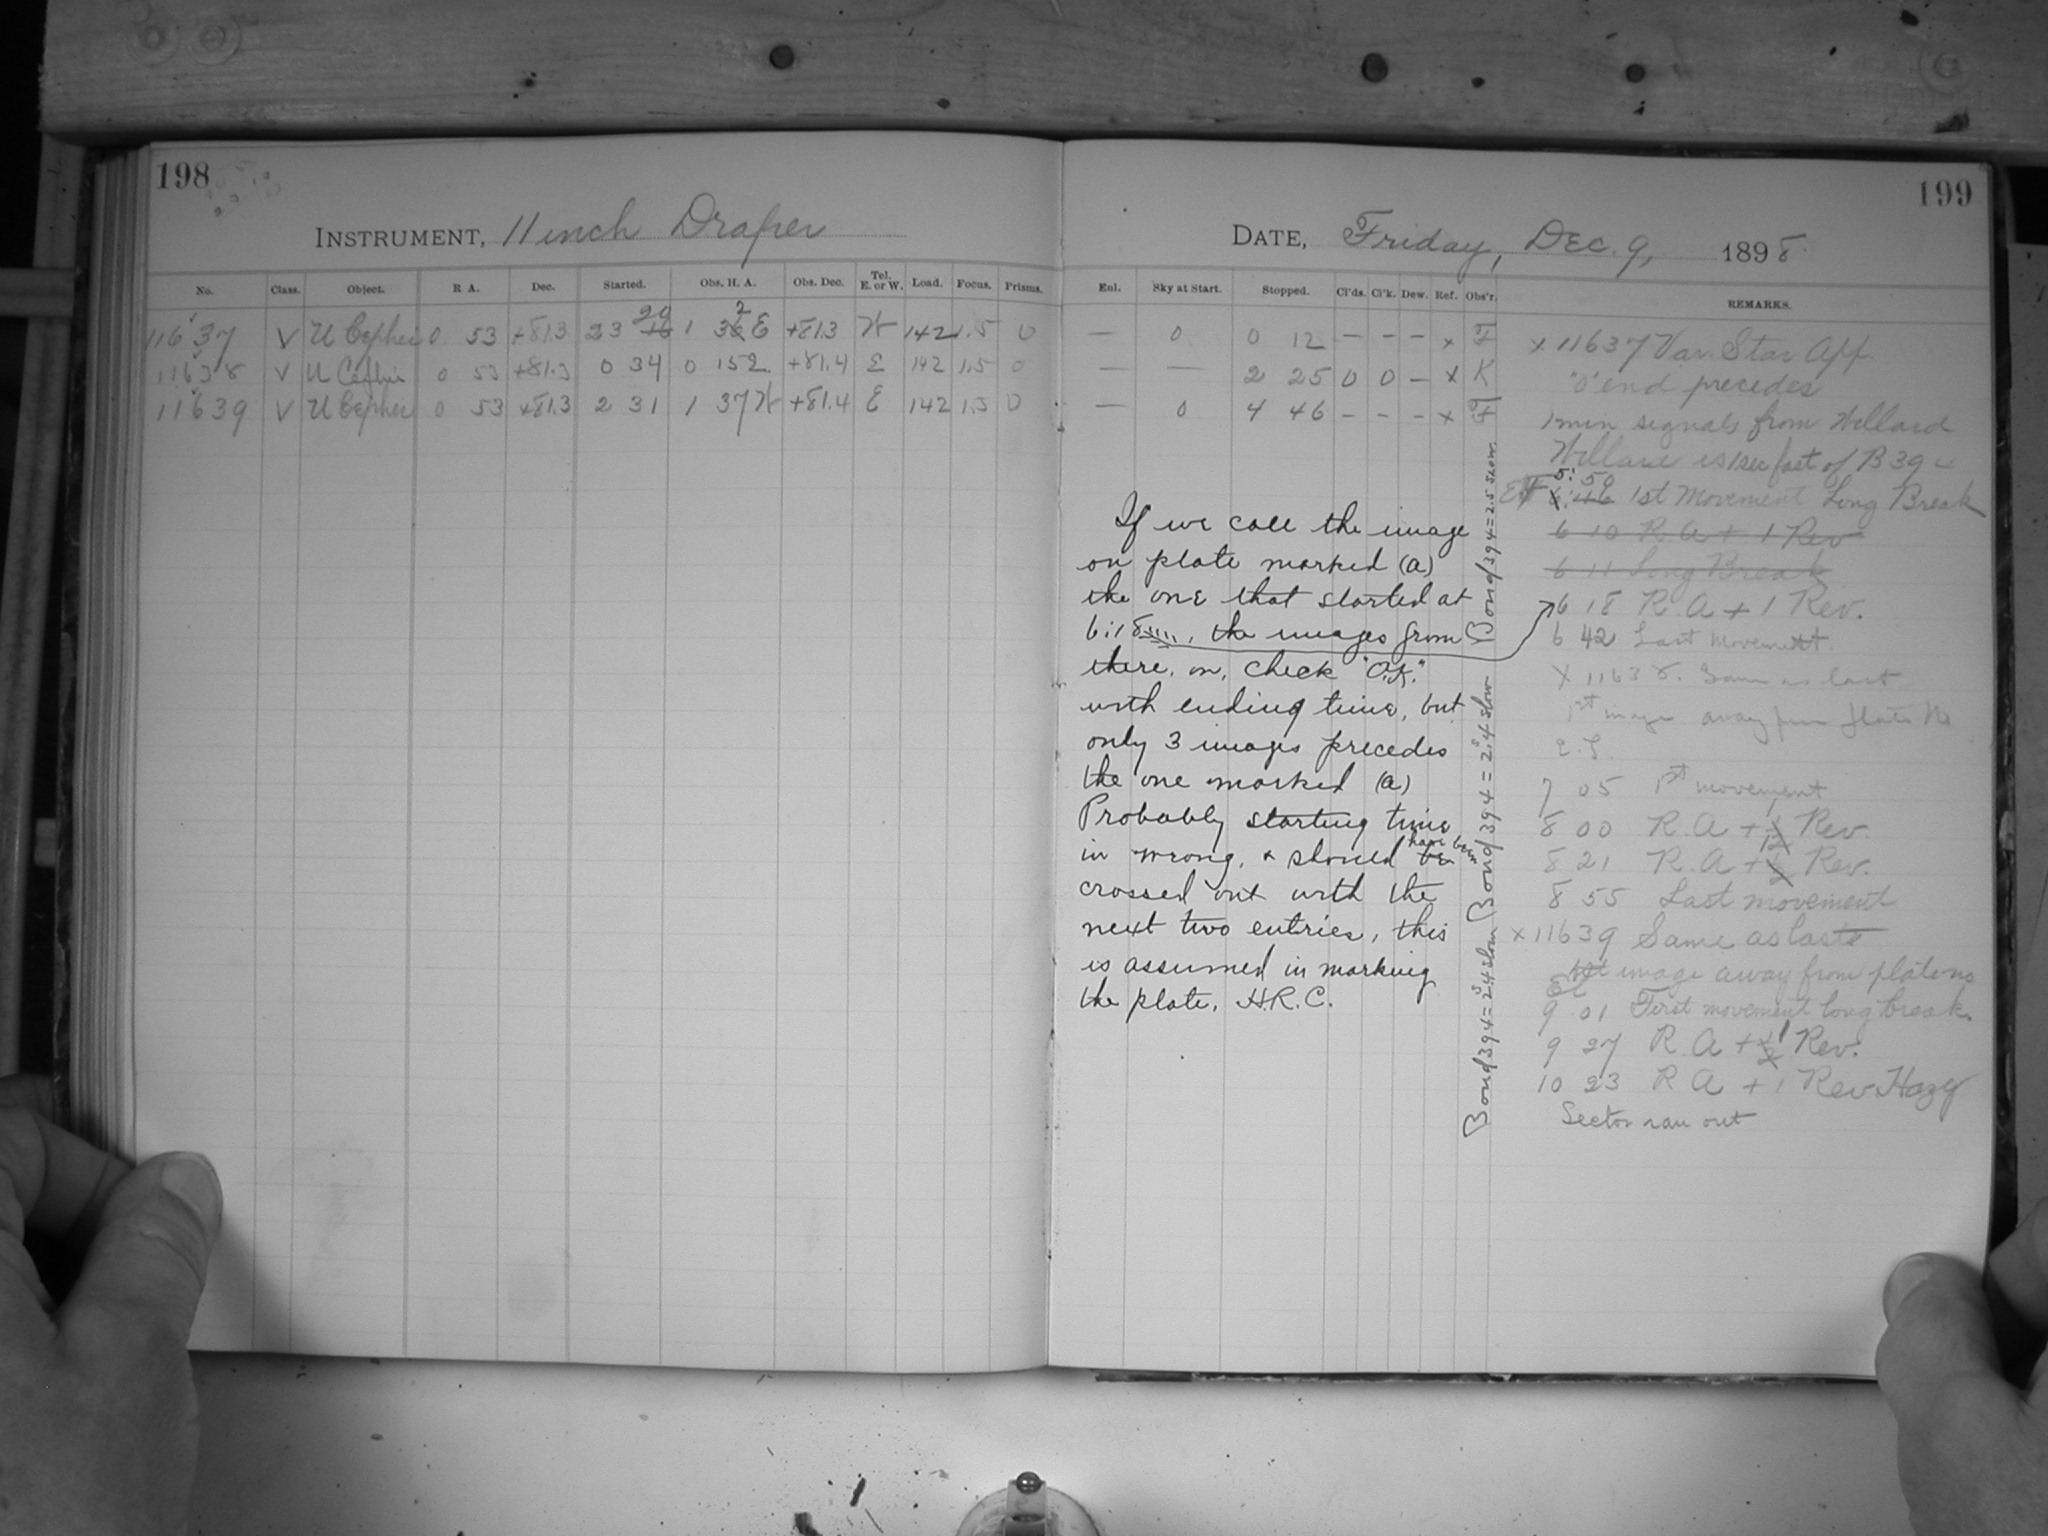 198
INSTRUMENT, 11 inch Draper
No. Class. Object. R A. Dec. Started. Obs. H. A. Obs. Dec. Tel. E. or W. Load. Focus. Prisms.
11637 V U Cephei 0 53 +81.3 23 20 1 32 E +81.3 W 142 1.5 0
11638 V U Cephei 0 53 +81.3 0 34 0 15 +81.4 E 142 1.5 0
11639 V U Cephei 0 53 +81.3 2 31 1 37 W +81.4 E 142 1.5 0
199
DATE, Friday, Dec. 9, 1898
Enl. Sky at Start. Stopped. Cl'ds. Cl'k. Dew. Ref. Obs'r. REMARKS.
— 0 0 12 — — — x F
— — 2 25 0 0 — x K
— 0 4 46 — — — x F
x 11637 Var. Star App.
"0" end precedes
1 min signals from Willard
Willard is 1 sec fast of B 394
5: 59 1st Movement Long Break
6 10 R A + 1 Rev
6 11 Long Break
6 18 R. A + 1 Rev.
6 42 Last Movement.
x 11638. Same as last
1st image away from plate No
7 05 1st movement
8 00 R. A + Rev.
8 21 R. A + Rev.
8 55 Last movement
x 11639 Same as last
1st image away from plate no
9 01 First movement long break.
9 27 R. A + 1 Rev.
10 23 R A + 1 Rev Hazy
Sector ran out
If we call the image
on plate marked (a)
the one that started at
6:18, the images from
there, on, check "O.K."
with ending time, but
only 3 images precedes
the one marked (a)
Probably starting time
in wrong, & should have been
crossed out with the
next two entries, this
is assumed in marking
the plate, H.R.C.
Bond 394 = 2.5 slow
Bond 394 = 2.4 slow
Bond 394 = 2.4 slow